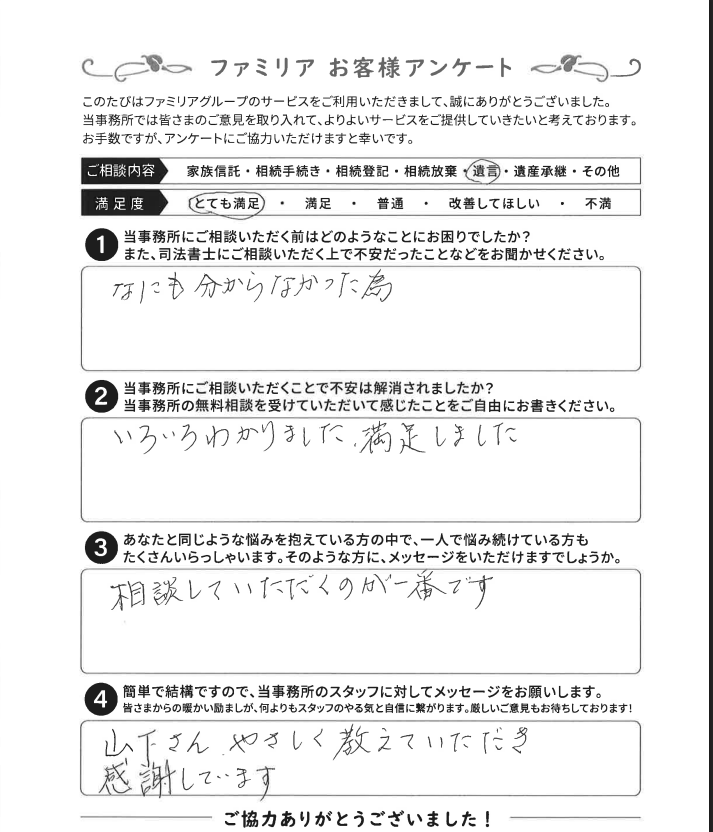 ファミリア お客様アンケート
このたびはファミリアグループのサービスをご利用いただきまして、誠にありがとうございました。
当事務所では皆さまのご意見を取り入れて、よりよいサービスをご提供していきたいと考えております。
お手数ですが、アンケートにご協力いただけますと幸いです。
ご相談内容 家族信託・相続手続き・相続登記・相続放棄・遺言・遺産承継・その他
満足度 とても満足 ・ 満足 ・ 普通 ・ 改善してほしい ・ 不満
1 当事務所にご相談いただく前はどのようなことにお困りでしたか?
また、司法書士にご相談いただく上で不安だったことなどをお聞かせください。
なにも分からなかった為
2 当事務所にご相談いただくことで不安は解消されましたか?
当事務所の無料相談を受けていただいて感じたことをご自由にお書きください。
いろいろわかりました、満足しました
3 あなたと同じような悩みを抱えている方の中で、一人で悩み続けている方も
たくさんいらっしゃいます。そのような方に、メッセージをいただけますでしょうか。
相談していただくのが一番です
4 簡単で結構ですので、当事務所のスタッフに対してメッセージをお願いします。
皆さまからの暖かい励ましが、何よりもスタッフのやる気と自信に繋がります。厳しいご意見もお待ちしております!
山下さん、やさしく教えていただき
感謝しています
ご協力ありがとうございました!